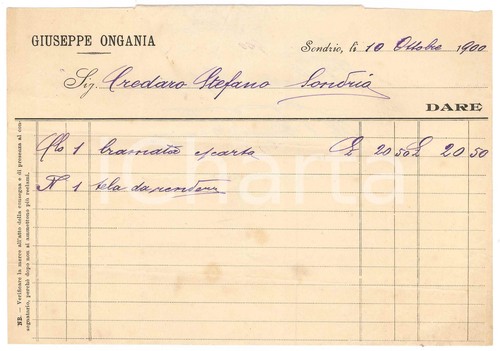 GIUSEPPE ONGANIA
Sondrio, li 10 Ottobre 1900
Sig. Credaro Stefano Sondrio
DARE
1 £ 20 50 £ 20 50
N 1 tela da
NB. — Verificare la merce all'atto della consegna e di presenza al consegnatario, perchè dopo non si ammettono più reclami.